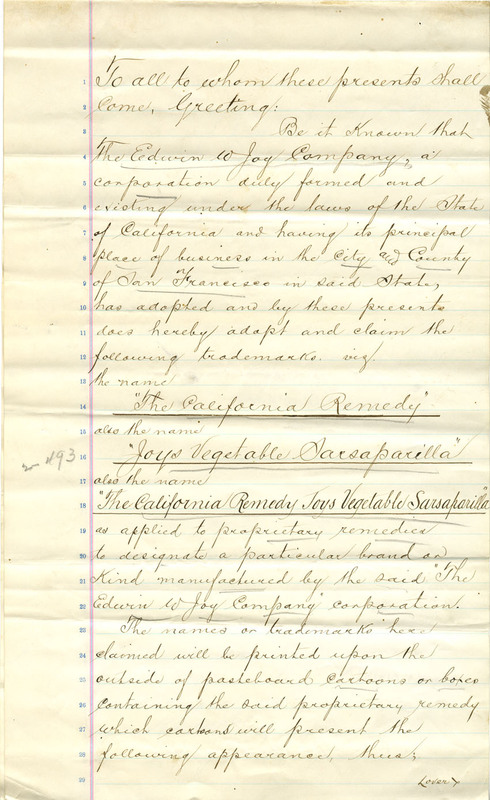 1 To all to whom these presents shall
2 Come, Greeting:
3 Be it Known that
4 The Edwin W Joy Company, a
5 corporation duly formed and
6 existing under the laws of the State
7 of California and having its principal
8 place of business in the City and County
9 of San Francisco in said State,
10 has adopted and by these presents
11 does hereby adopt and claim the
12 following trademarks. viz
13 the name
14 "The California Remedy"
15 also the name
16 "Joys Vegetable Sarsaparilla"
493
17 also the name
18 "The California Remedy Joys Vegetable Sarsaparilla"
19 as applied to proprietary remedies
20 to designate a particular brand or
21 Kind manufactured by the said "The
22 Edwin W Joy Company" corporation.
23 The names or trademarks here
24 claimed will be printed upon the
25 outside of pasteboard cartoons or boxes
26 containing the said proprietary remedy
27 which cartoons will present the
28 following appearance, thus;
29 (over)